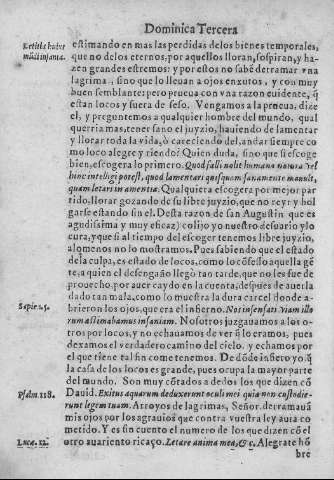 Dominica Tercera
estimando en mas las perdidas delos bienes temporales,
que no delos eternos, por aquellos lloran, sospiran, y ha-
zen grandes estremos: y por estos no sabē derramar vna
lagrima, sino que lo lleuan a ojos enxutos, y con muy
buen semblante: pero prueua con vna razon euidente, q̄
estan locos y fuera de seso. Vengamos a la prueua, dize
el, y preguntemos a qualquier hombre del mundo, qual
querria mas, tener sano el juyzio, hauiendo de lamentar
y llorar toda la vida, ò careciendo del, andar siempre co
mo loco alegre y riendo? Quien duda, sino que si escoge
bien, escogera lo primero. Quod falli nolit humana natura vel
hinc intelligi potest, quod lamentari quisquam sana mente mauult,
quam letari in amentia. Qualquiera escogera por mejor par
tido, llorar gozando de su libre juyzio, que no reyr y hol
garse estando sin el. Desta razon de san Augustin que es
agudissima y muy eficaz) colijo yo nuestro desuario y lo
cura, y que si al tiempo del escoger tenemos libre juyzio,
alomenos no lo mostramos. Pues sabiendo que el estado
dela culpa, es estado de locos, como lo cōfesso aquella gē
te, a quien el desengaño llegò tan tarde, que no les fue de
prouecho, por auer caydo en la cuenta, despues de auerla
dado tan mala, como lo muestra la dura carcel donde a-
brieron los ojos, que era el infierno. Nos insensati vitam illo
rum æstimabamus insaniam. Nosotros juzgauamos a los o-
tros por locos, y no echauamos de ver q̄ lo eramos, pues
dexamos el verdadero camino del cielo, y echamos por
el que tiene tal fin como tenemos. De dōde infiero yo, q̄
la casa de los locos es grande, pues ocupa la mayor parte
del mundo. Son muy cōtados a dedos los que dizen cō
Dauid. Exitus aquarum deduxerunt oculi mei quia non custodie-
runt legem tuam. Arroyos de lagrimas, Señor, derramauā
mis ojos por los agrauios que contra vuestra ley auia co
metido. Y es sin cuento el numero de los que dizen cō el
otro auariento ricaço. Letare anima mea, &c. Alegrate hō
bre
Letitia habet
multi insania.
Sapie 2.5.
Psalm. 118.
Lucæ. 12.